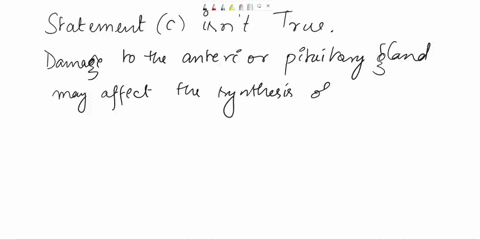 Statement (c) isn't True.
Damage to the anterior pituitary gland
may affect the synthesis of